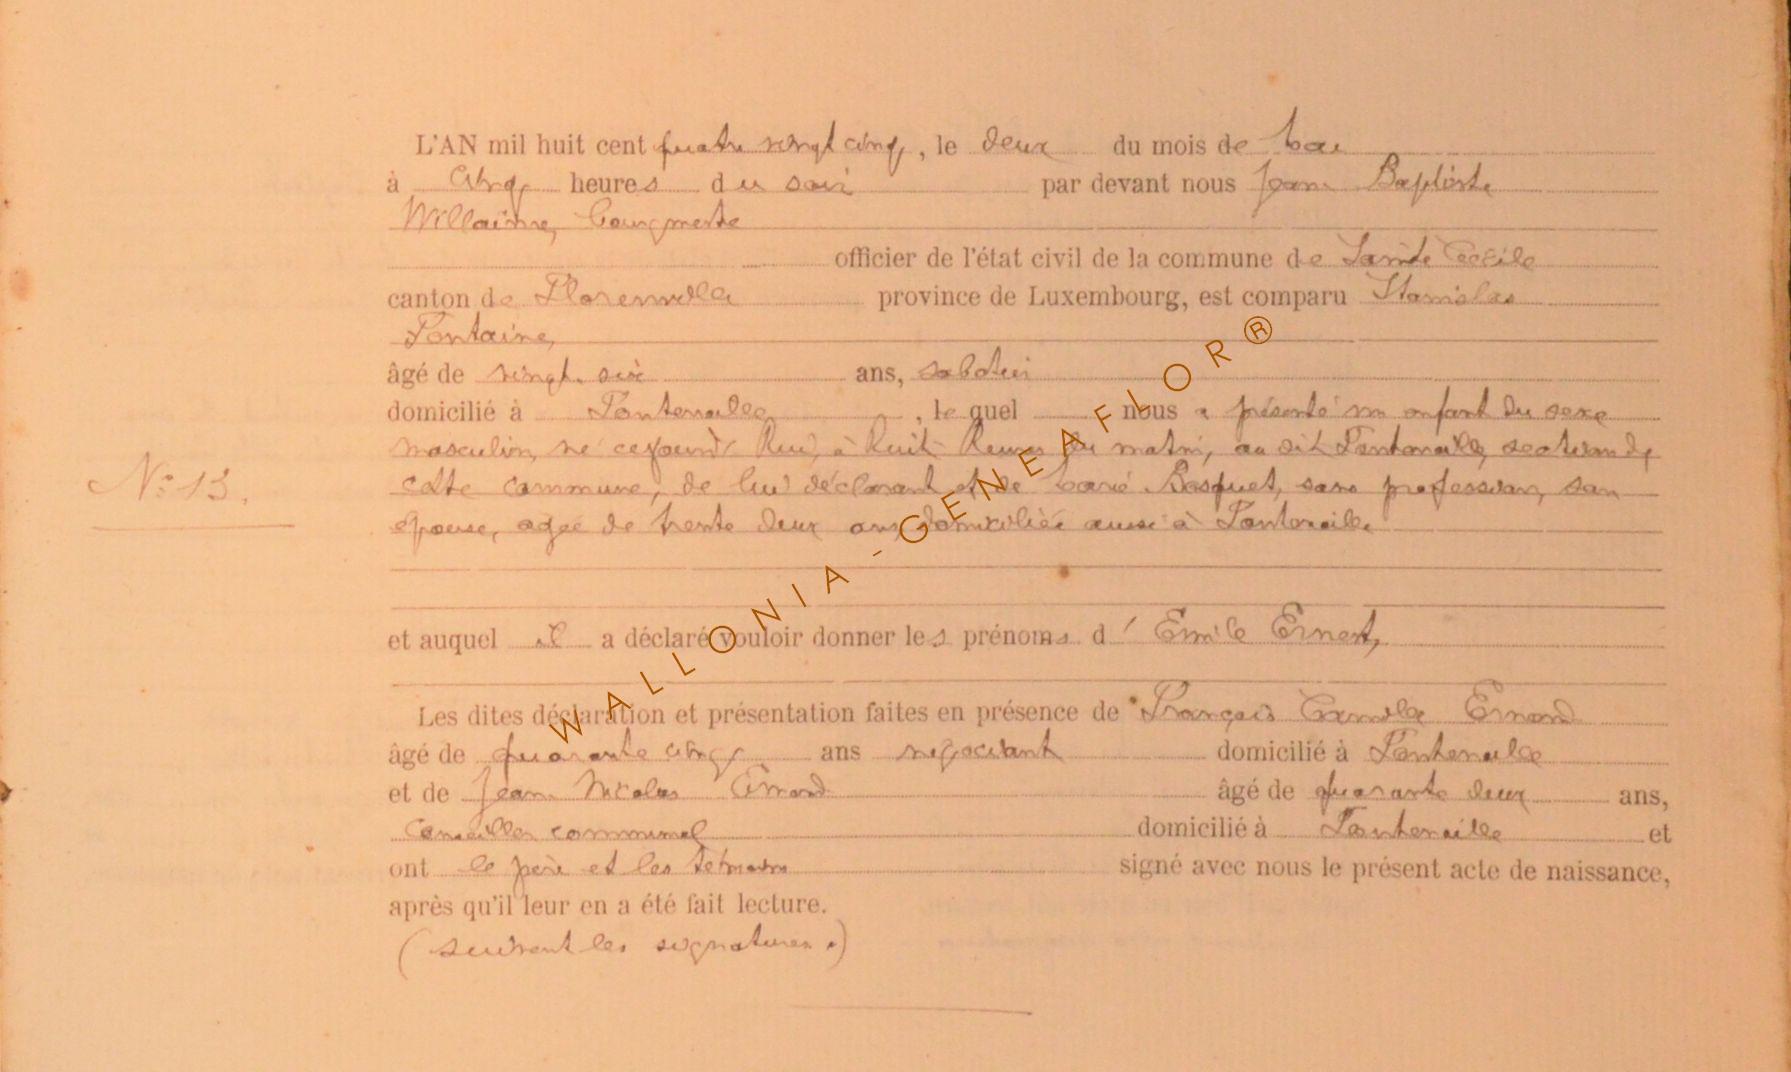 L'AN mil huit cent quatre vingt cinq, le deux du mois de Mai
à cinq heures du soir par devant nous Jean Baptiste
Willaime, bourgmestre
officier de l'état civil de la commune de Sainte Cécile
canton de Florenville province de Luxembourg, est comparu Stanislas
Fontaine,
âgé de vingt six ans, sabotier
domicilié à Fontenaille, le quel nous a présenté un enfant du sexe
masculin, né cejourd'hui, à huit heures du matin, au dit Fontenaille, section de
N° 13.
cette commune, de lui déclarant et de Marie Basquet, sans profession, son
épouse, agée de trente deux ans, domiciliée aussi à Fontenaille
et auquel il a déclaré vouloir donner les prénoms d' Emile Ernest,
Les dites déclaration et présentation faites en présence de François Camille Evrard
âgé de quarante cinq ans négociant domicilié à Fontenaille
et de Jean Nicolas Evrard âgé de quarante deux ans,
Conseiller communal domicilié à Fontenaille et
ont le père et les témoins signé avec nous le présent acte de naissance,
après qu'il leur en a été fait lecture.
(suivent les signatures.)
WALLONIA-GENEAFLOR®